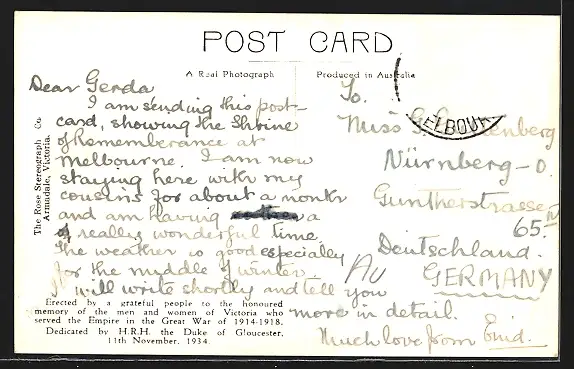 POST CARD
A Real Photograph
Produced in Australia
Dear Gerda,
I am sending this post-
card, showing the Shrine
of Rememberance at
Melbourne. I am now
staying here with my
cousins for about a month
and am having a
really wonderful time.
The weather is good especially
for the middle of winter
I will write shortly and tell you
more in detail.
Much love from Enid.
To.
Miss G.
Nürnberg-O.
Guntherstrasse
65.
Deutschland.
GERMANY
AU
MELBOU
The Rose Stereograph Co
Armadale, Victoria.
Erected by a grateful people to the honoured
memory of the men and women of Victoria who
served the Empire in the Great War of 1914-1918.
Dedicated by H.R.H. the Duke of Gloucester,
11th November, 1934.